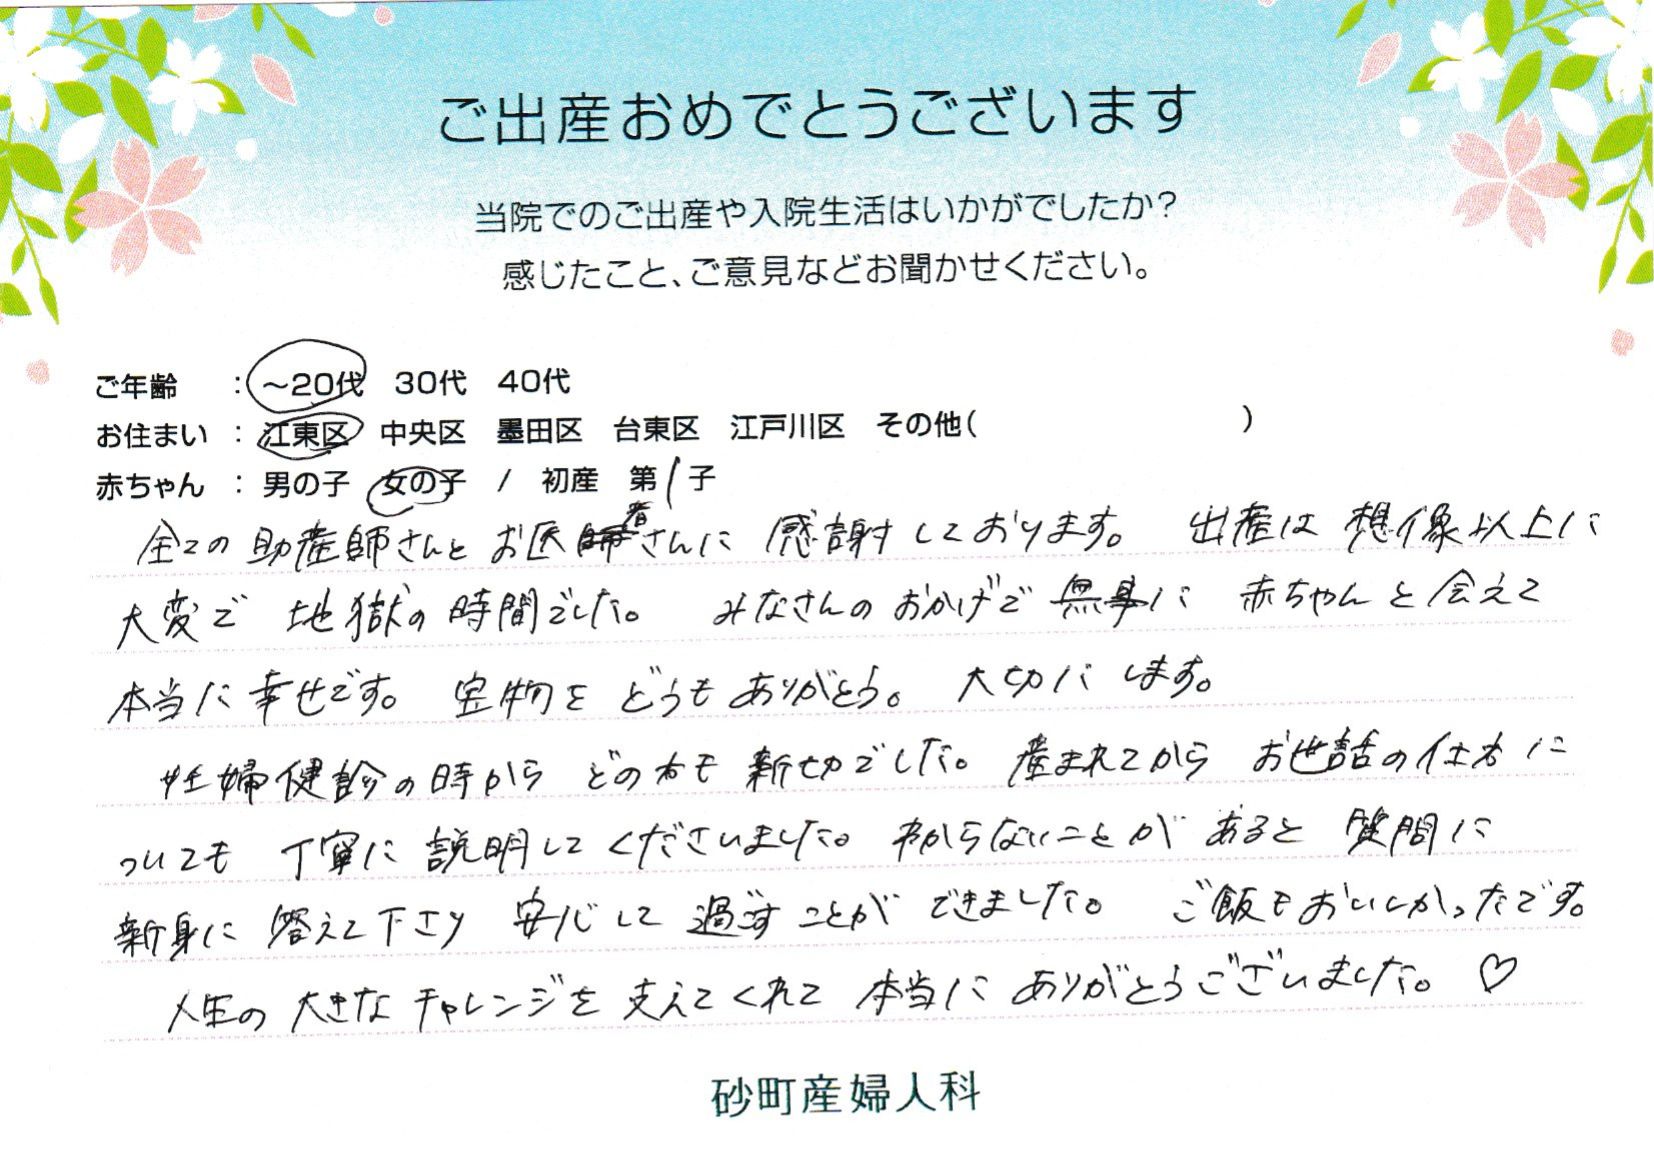 ご出産おめでとうございます
当院でのご出産や入院生活はいかがでしたか?
感じたこと、ご意見などお聞かせください。
ご年齢 : ～20代 30代 40代
お住まい : 江東区 中央区 墨田区 台東区 江戸川区 その他( )
赤ちゃん : 男の子 女の子 / 初産 第1子
全ての助産師さんとお医者さんに感謝しております。 出産は想像以上に
大変で 地獄の時間でした。 みなさんのおかげで無事に 赤ちゃんと会えて
本当に幸せです。 宝物をどうもありがとう。 大切にします。
妊婦健診の時から どの方も親切でした。産まれてから お世話の仕方に
ついても 丁寧に説明してくださいました。わからないことが あると 質問に
親身に 答えて下さり 安心して過ごすことが できました。 ご飯もおいしかったです。
人生の大きなチャレンジを支えてくれて 本当に ありがとうございました。♡
砂町産婦人科